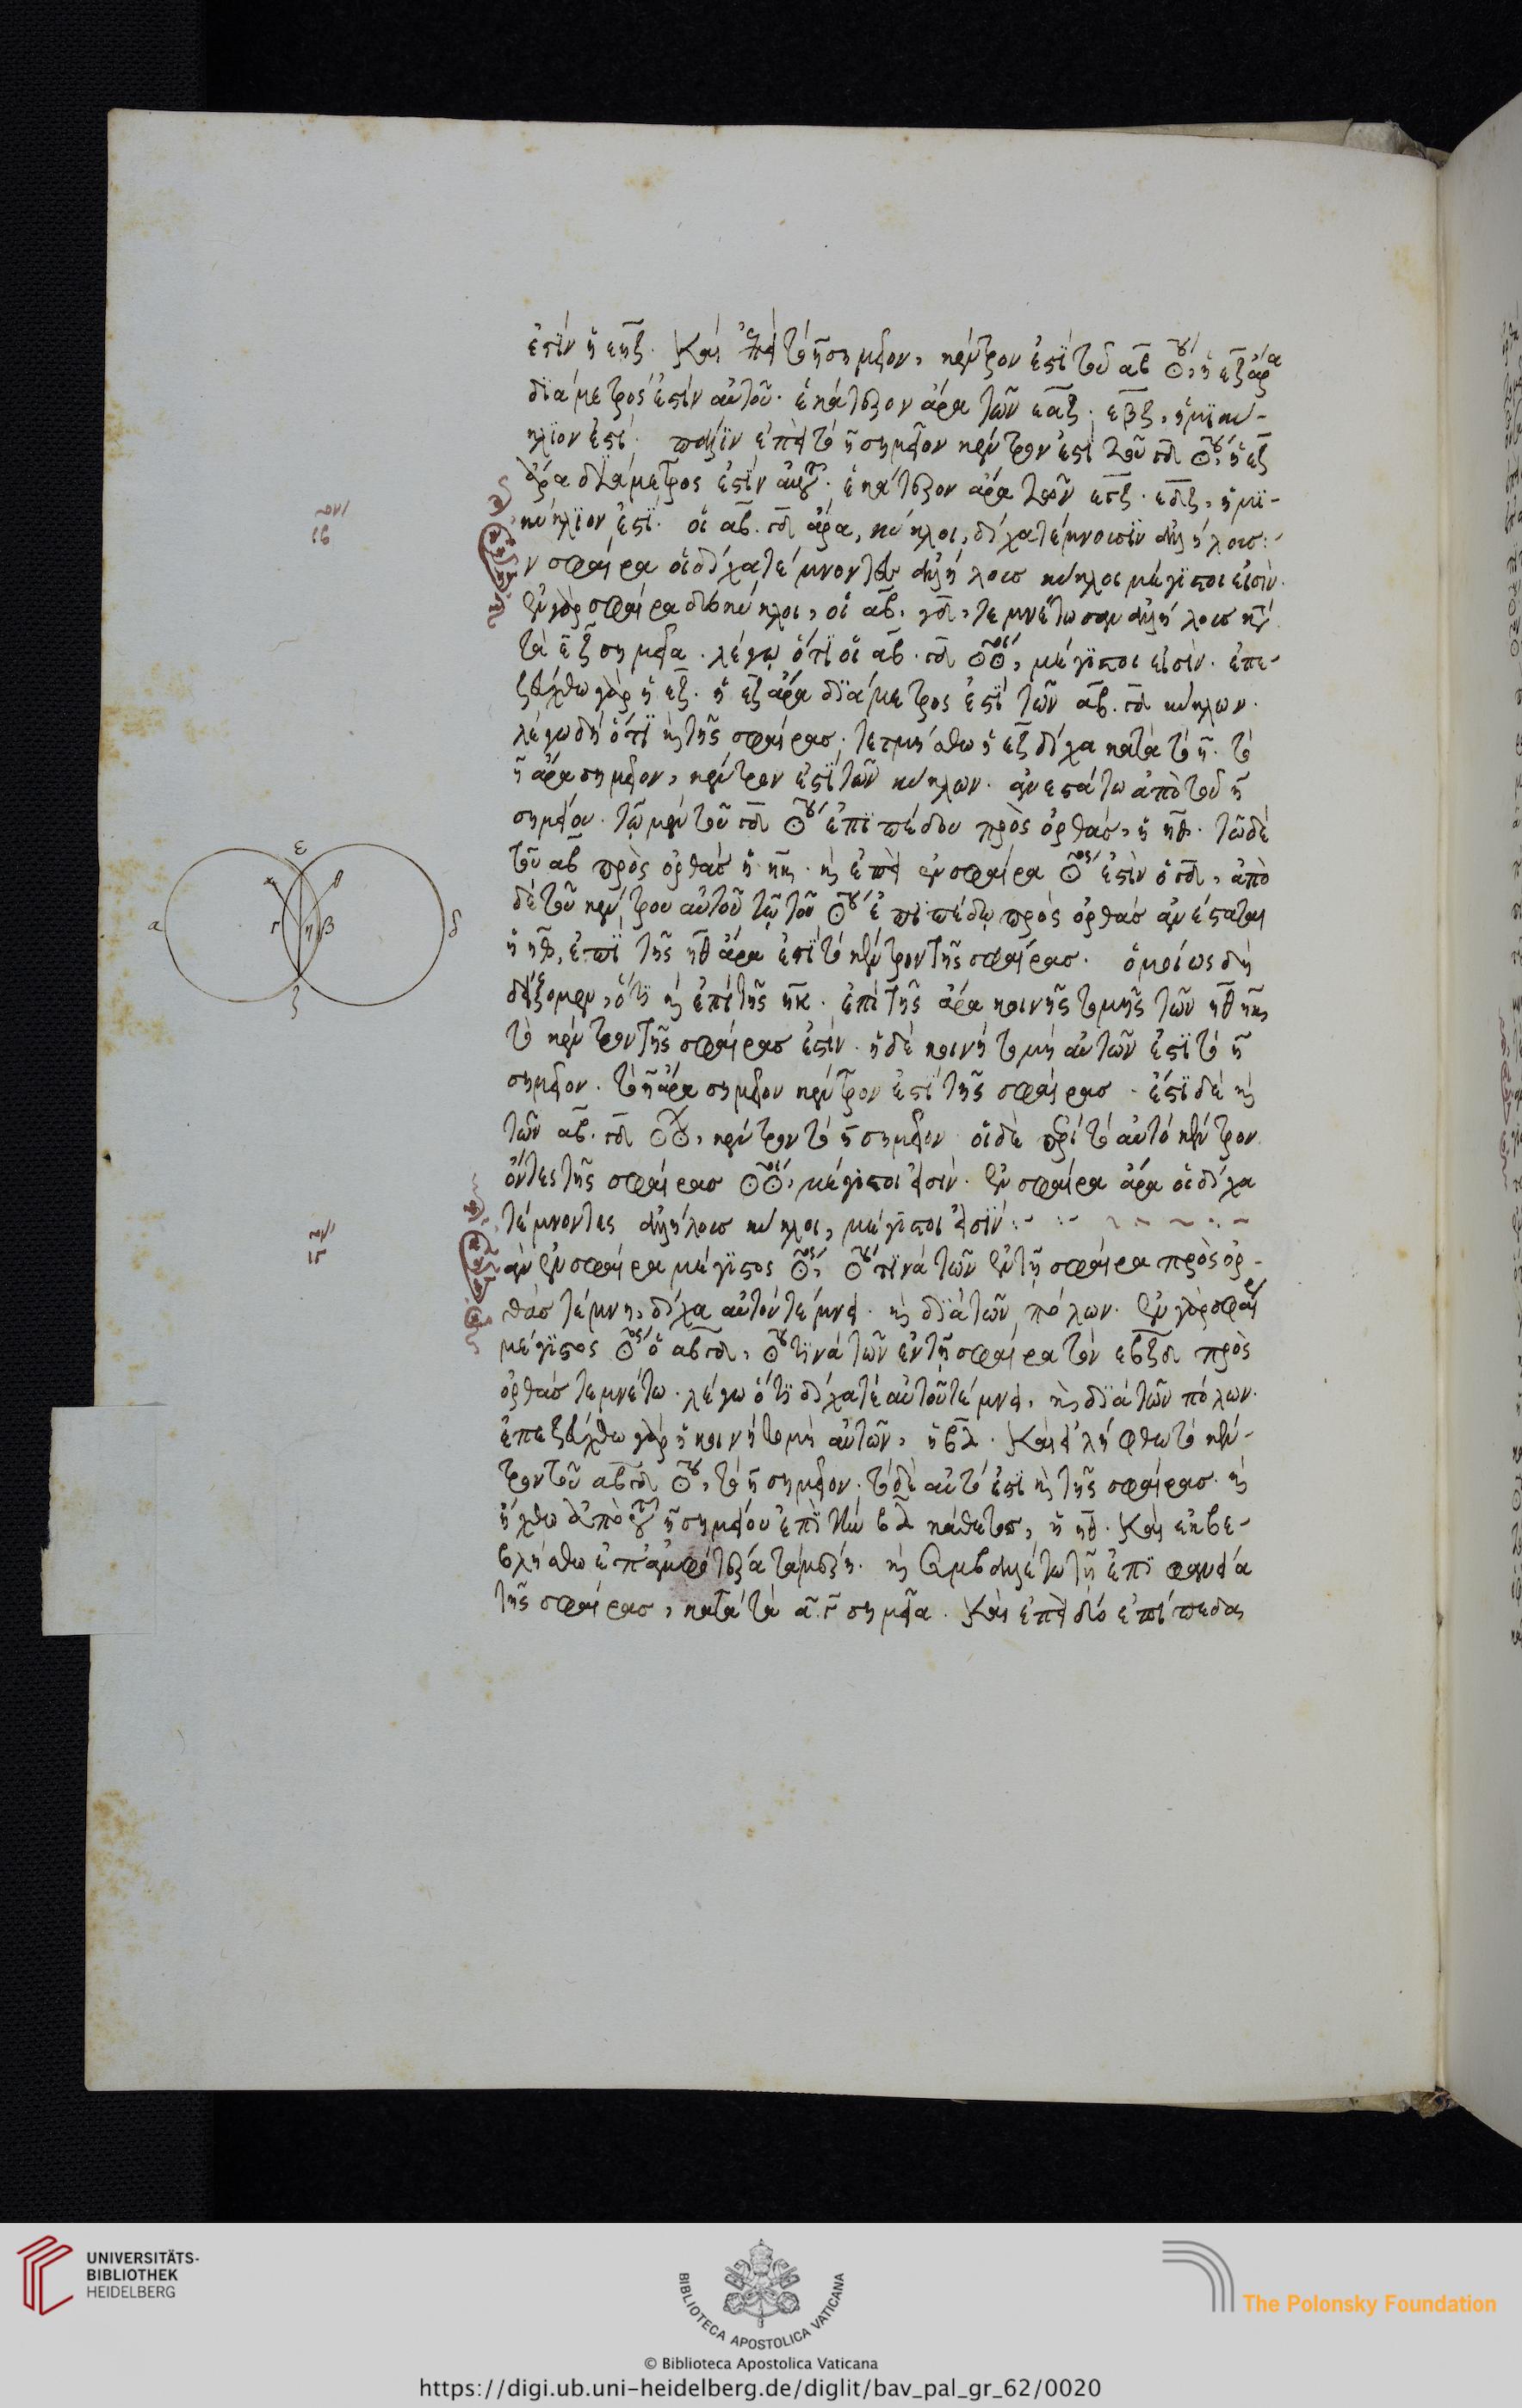 ἐστὶν ἡ εηζ. Καὶ ἐπεὶ τὸ η σημεῖον, κέντρον ἐστὶ τοῦ αβ ☉ου, ἡ εζ ἄρα
διάμετρός ἐστιν αὐτοῦ. ἑκάτερον ἄρα τῶν εαζ. εβζ, ἡμικύ-
κλιον ἐστί. πάλιν ἐπεὶ τὸ η σημεῖον κέντρον ἐστὶ τοῦ γδ ☉ου, ἡ εζ
ἄρα διάμετρος ἐστὶν αὐτοῦ. ἑκάτερον ἄρα τῶν εγζ. εδζ, ἡμι-
κύκλιον ἐστί. οἱ αβ. γδ ἄρα, κύκλοι, δίχα τέμνουσιν ἀλλήλους :
ν σφαίρα οἱ δίχα τέμνοντες ἀλλήλους κύκλοι μέγιστοι εἰσίν.
ἐν γὰρ σφαίρα δύο κύκλοι, οἱ αβ, γδ, τεμνέτωσαν ἀλλήλους κατὰ
τὰ ε ζ σημεῖα. λέγω ὅτι οἱ αβ. γδ ☉☉οι, μέγιστοι εἰσίν. ἐπε-
ζεύχθω γὰρ ἡ εζ. ἡ εζ ἄρα διάμετρος ἐστὶ τῶν αβ. γδ κύκλων.
λέγω δὴ ὅτι καὶ τῆς σφαίρας. τετμήσθω ἡ εζ δίχα κατὰ τὸ η. τὸ
η ἄρα σημεῖον, κέντρον ἐστὶ τῶν κύκλων. ἀνεστάτω ἀπὸ τοῦ η
σημείου. τῶ μὲν τοῦ γδ ☉ου ἐπιπέδου πρὸς ὀρθάς, ἡ ηθ. τῶ δὲ
τοῦ αβ πρὸς ὀρθάς ἡ ηκ. καὶ ἐπεὶ ἐν σφαίρα ☉ος ἐστὶν ὁ γδ, ἀπὸ
δὲ τοῦ κέντρου αὐτοῦ τῶ τοῦ ☉ου ἐπιπέδω πρὸς ὀρθάς ἀνέσταται
ἡ ηθ, ἐπὶ τῆς ηθ ἄρα ἐστὶ τὸ κέντρον τῆς σφαίρας. ὁμοίως δὴ
δείξομεν, ὅτι καὶ ἐπὶ τῆς ηκ. ἐπὶ τῆς ἄρα κοινῆς τομῆς τῶν ηθ ηκ
τὸ κέντρον τῆς σφαίρας ἐστίν. ἡ δὲ κοινὴ τομὴ αὐτῶν ἐστὶ τὸ η
σημεῖον. τὸ η ἄρα σημεῖον κέντρον ἐστὶ τῆς σφαίρας. ἔστι δὲ καὶ
τῶν αβ. γδ ☉☉, κέντρον τὸ η σημεῖον οἱ δὲ περὶ τὸ αὐτὸ κέντρον
ὄντες τῆς σφαίρας ☉☉οι, μέγιστοι εἰσίν. ἐν σφαίρα ἄρα οἱ δίχα
τέμνοντες ἀλλήλους κύκλοι, μέγιστοι εἰσίν :
ὰν ἐν σφαίρα μέγιστος ☉ος, ☉ον τινὰ τῶν ἐν τῆ σφαίρα πρὸς ὀρ-
θάς τέμνη, δίχα αὐτὸν τέμνει. καὶ διὰ τῶν πόλων. ἐν γὰρ σφαίρα
μέγιστος ☉ος ὁ αβγδ, ☉ον τινὰ τῶν ἐν τῆ σφαίρα τὸν εβζδ πρὸς
ὀρθάς τεμνέτω. λέγω ὅτι δίχα τὲ αὐτὸν τέμνει, καὶ διὰ τῶν πόλων.
ἐπεζεύχθω γὰρ ἡ κοινὴ τομὴ αὐτῶν, ἡ βδ. Καὶ εἰλήφθω τὸ κέν-
τρον τοῦ αβγδ ☉ου, τὸ η σημεῖον. τὸ δὲ αὐτό ἐστι καὶ τῆς σφαίρας. καὶ
ἤχθω ἀπὸ τοῦ η σημείου ἐπὶ τὴν βδ κάθετος, ἡ ηθ. Καὶ ἐκβε-
βλήσθω ἐπ' ἀμφότερα τὰ μέρη. καὶ συμβαλλέτω τῆ ἐπιφανεία
τῆς σφαίρας, κατὰ τὰ α. γ σημεῖα. Καὶ ἐπεὶ δύο ἐπίπεδα
ιβ
ε
θ
α
γ
η
β
δ
ζ
UNIVERSITÄTS-
BIBLIOTHEK
HEIDELBERG
BIBLIOTECA APOSTOLICA VATICANA
The Polonsky Foundation
© Biblioteca Apostolica Vaticana
https://digi.ub.uni-heidelberg.de/diglit/bav_pal_gr_62/0020